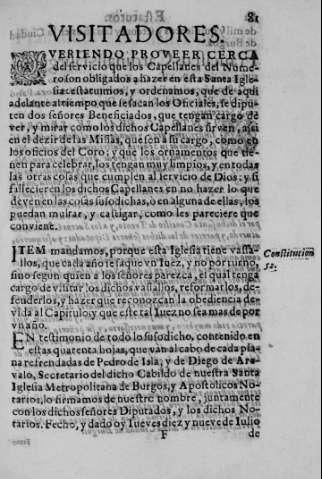 81
VISITADORES.
QVERIENDO PROVEER CERCA
del servicio que los Capellanes del Nume-
ro son obligados a hazer en esta Santa Igle-
sia: estatuimos, y ordenamos, que de aqui
adelante al tiempo que se sacan los Oficiales, se dipu-
ten dos señores Beneficiados, que tengan cargo de
ver, y mirar como los dichos Capellanes sirven, assi
en el dezir de las Missas, que sen a su cargo, como en
los oficios del Coro; y que los ornamentos que tie-
nen para celebrar, los tengan muy limpios, y en todas
las otras cosas que cumplen al servicio de Dios: y si
fallecieren los dichos Capellanes en no hazer lo que
deven en las cosas susodichas, o en alguna de ellas, los
puedan multar, y castigar, como les pareciere que
conviene.
ITEM mandamos, porque esta Iglesia tiene vassa-
llos, que cada año se saque vn Iuez, y no por turno,
sino segun quien a los señores parezca, el qual tenga
cargo de visitar los dichos vassallos, reformarlos, de-
fenderlos, y hazer que reconozcan la obediencia de-
vida al Capitulo, y que este tal Iuez no sea mas de por
vn año.
Constitucion
52.
EN testimonio de todo lo susodicho, contenido en
estas quarenta hojas, que van al cabo de cada pla-
na refrendadas de Pedro de Isla, y de Diego de Are-
valo, Secretario del dicho Cabildo de nuestra Santa
Iglesia Metropolitana de Burgos, y Apostolicos No-
tarios, lo firmamos de nuestro nombre, juntamente
con los dichos señores Diputados, y los dichos No-
tarios. Fecho, y dado oy Iueves diez y nueve de Iulio
F
de